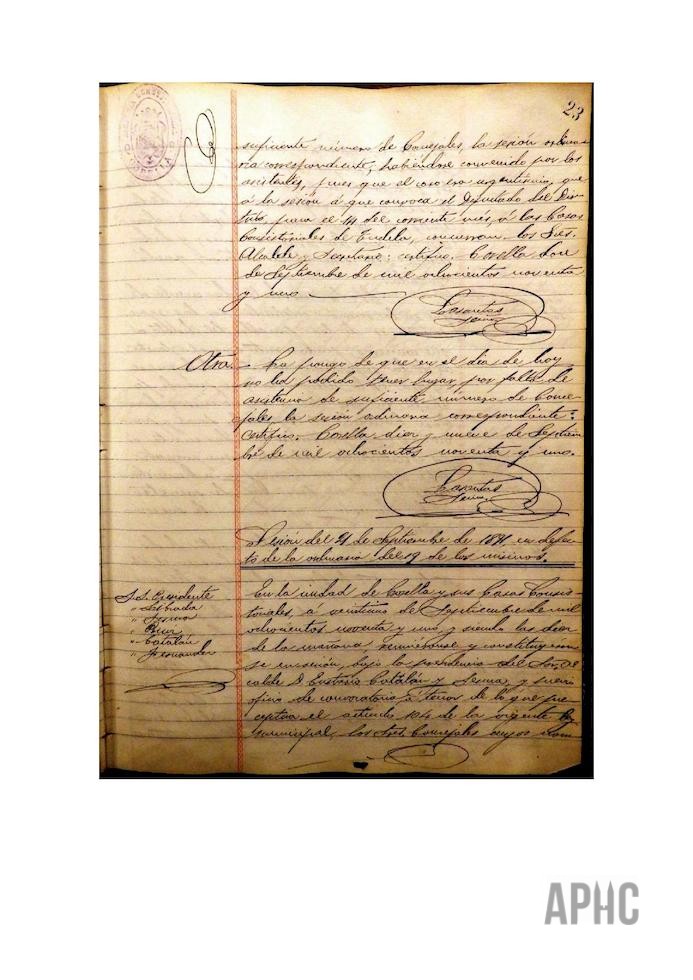 23
suficiente número de Concejales, la sesión ordina-
ria correspondiente, habiéndose convenido por los
asistentes, pues que el caso era urgentísimo, que
á la sesión á que convoca el Diputado del Dis-
trito para el 14 del corriente mes, á las Casas
Consistoriales de Tudela, concurran los Sres.
Alcalde y Secretario: certifico. Corella doce
de Septiembre de mil ochocientos noventa
y uno
Otra.
ha pongo de que en el día de hoy
no ha podido tener lugar por falta de
asistencia de suficiente número de Conce-
jales la sesión ordinaria correspondiente:
Certifico. Corella diez y nueve de Septiem-
bre de mil ochocientos noventa y uno.
Sesión del 21 de Septiembre de 1891 en defec-
to de la ordinaria del 19 de los mismos.
S.S. Presidente
" Catalán
En la ciudad de Corella y sus Casas Consis-
toriales, á veintiuno de Septiembre de mil
ochocientos noventa y uno, y siendo las diez
de la mañana, y constituyéron
se en sesión, bajo la presidencia del Sor. Al
calde D. Eustasio Catalán y y previo
oficio de convocatoria á tenor de lo que pre-
ceptúa el artículo 104 de la vigente Ley
municipal, los Sres. Concejales cuyos nom-
APHC